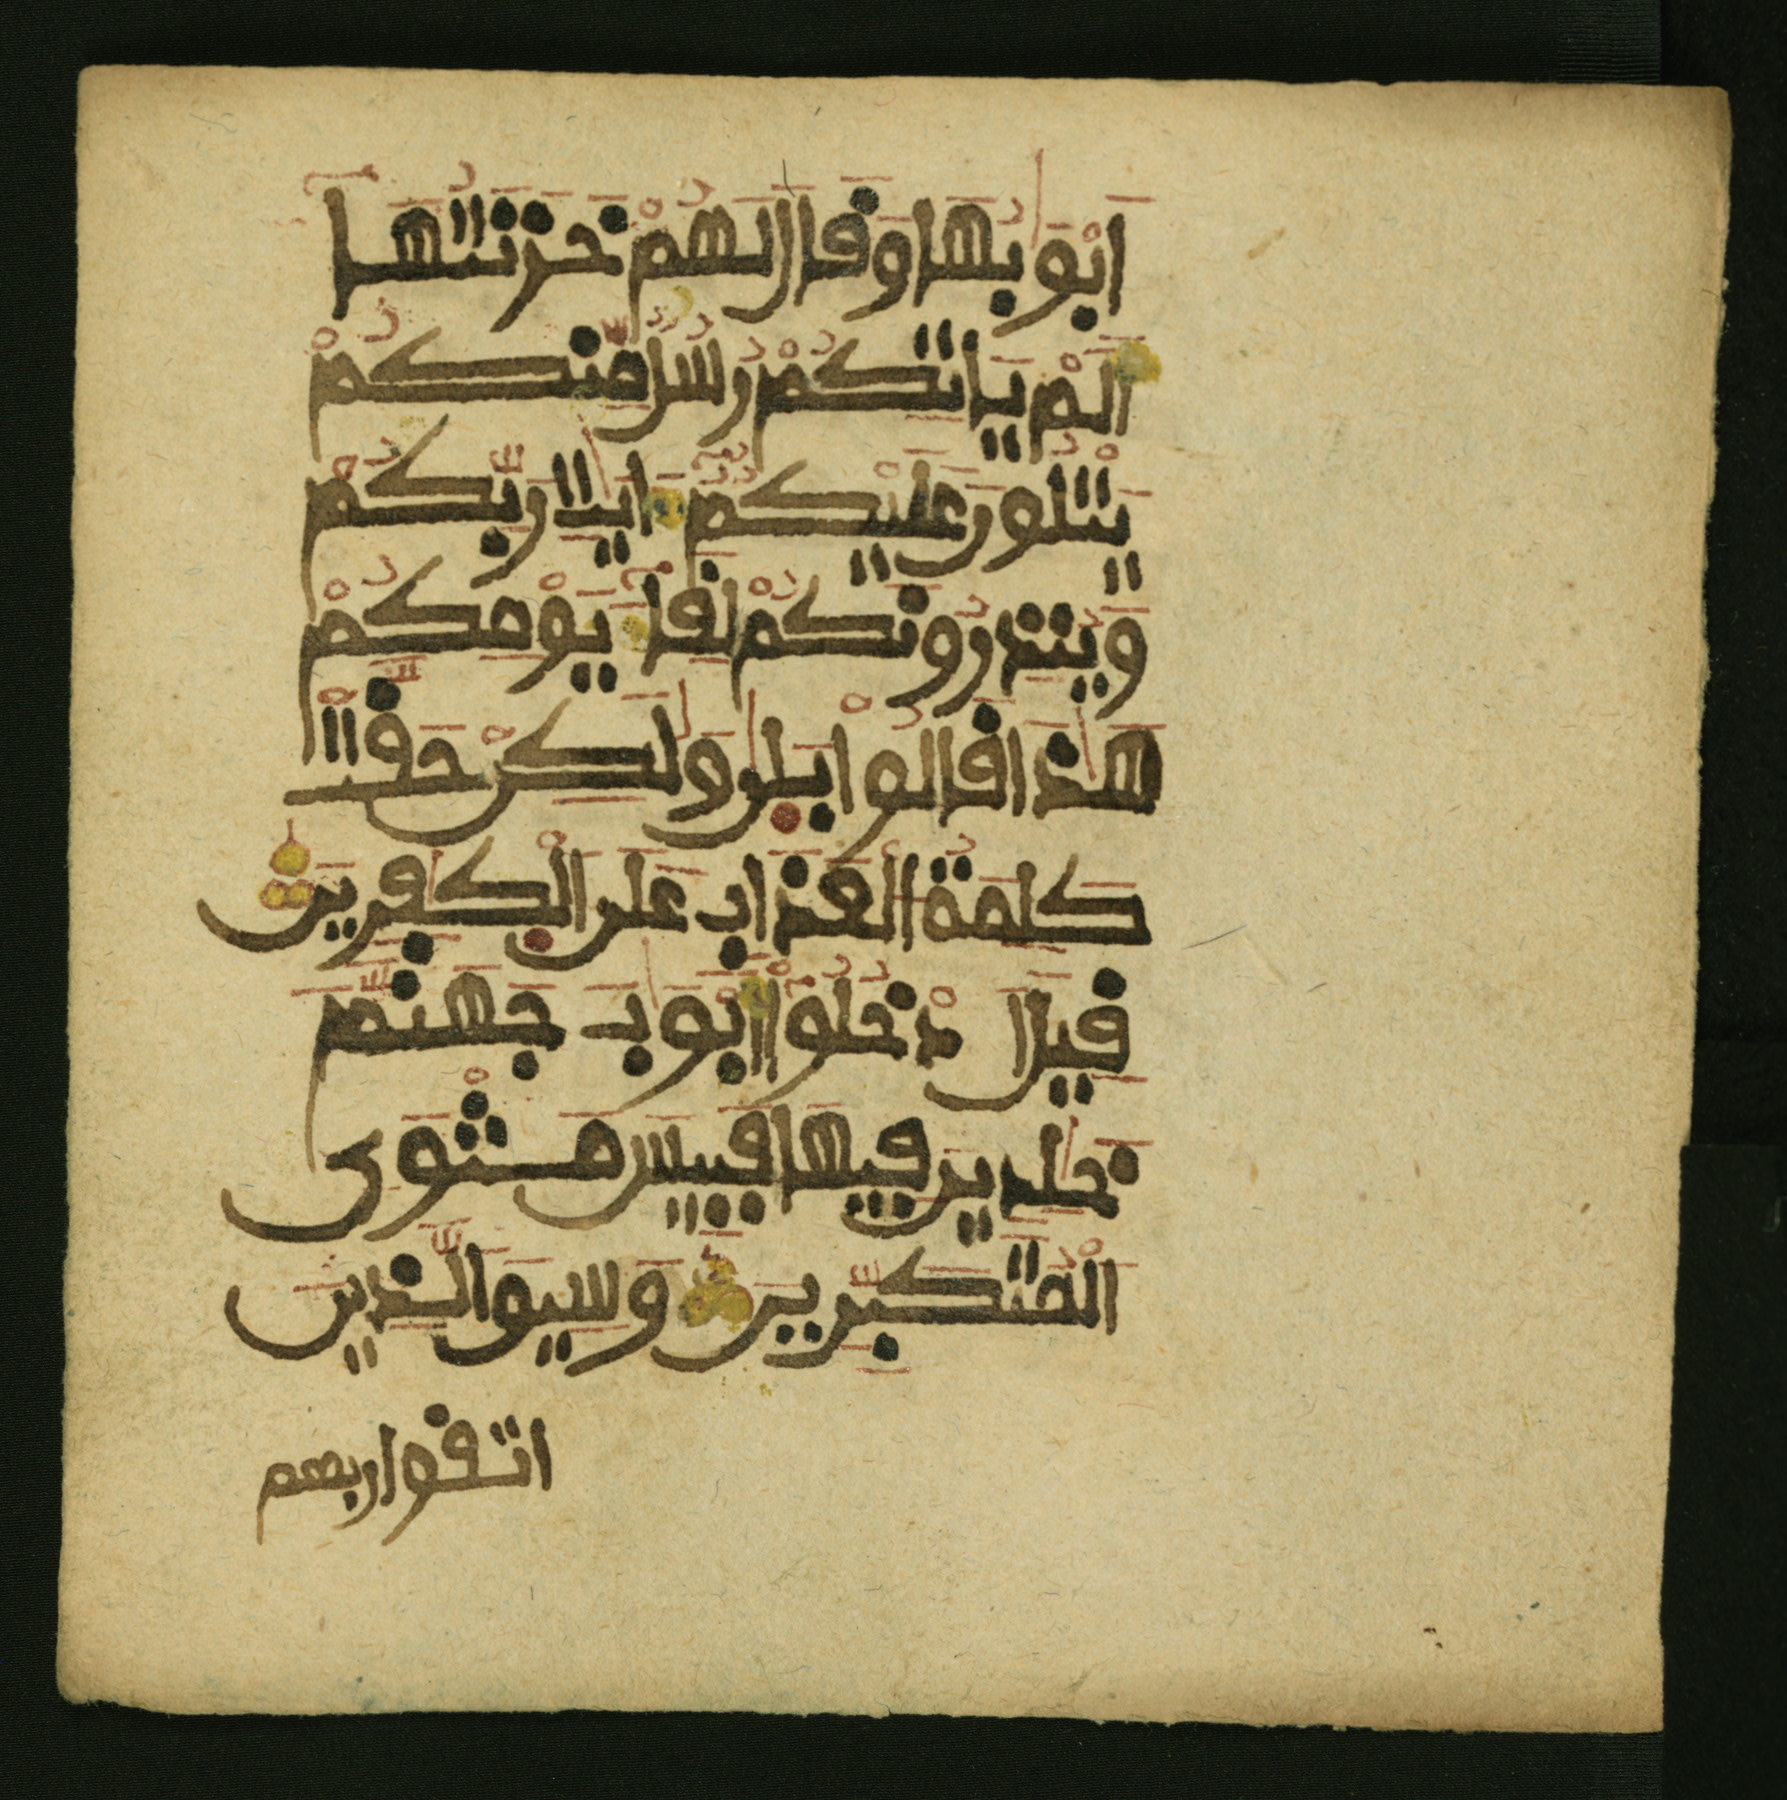 أَبْوَٰبُهَا وَقَالَ لَهُمْ خَزَنَتُهَا
أَلَمْ يَاتِكُمْ رُسُلٌ مِّنكُمْ
يَتْلُونَ عَلَيْكُمُۥٓ ءَايَٰتِ رَبِّكُمْ
وَيُنذِرُونَكُمْ لِقَآءَ يَوْمِكُمْ
هَٰذَا قَالُوا۟ بَلَىٰ وَلَٰكِنْ حَقَّتْ
كَلِمَةُ ٱلْعَذَابِ عَلَى ٱلْكَٰفِرِينَ
قِيلَ ٱدْخُلُوٓا۟ أَبْوَٰبَ جَهَنَّمَ
خَٰلِدِينَ فِيهَا فَبِيسَ مَثْوَى
ٱلْمُتَكَبِّرِينَ وَسِيقَ ٱلَّذِينَ
اتقوا ربهم